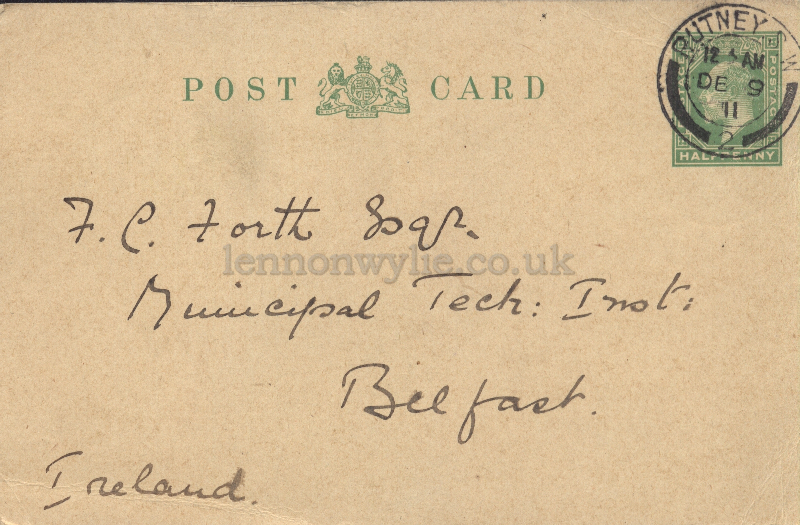 POST CARD
PUTNEY S.W
12 AM
DE 9
11
2
POSTAGE
HALFPENNY
F. C. Forth Esqr.
lennonwylie.co.uk
Municipal Tech: Inst:
Belfast.
Ireland.